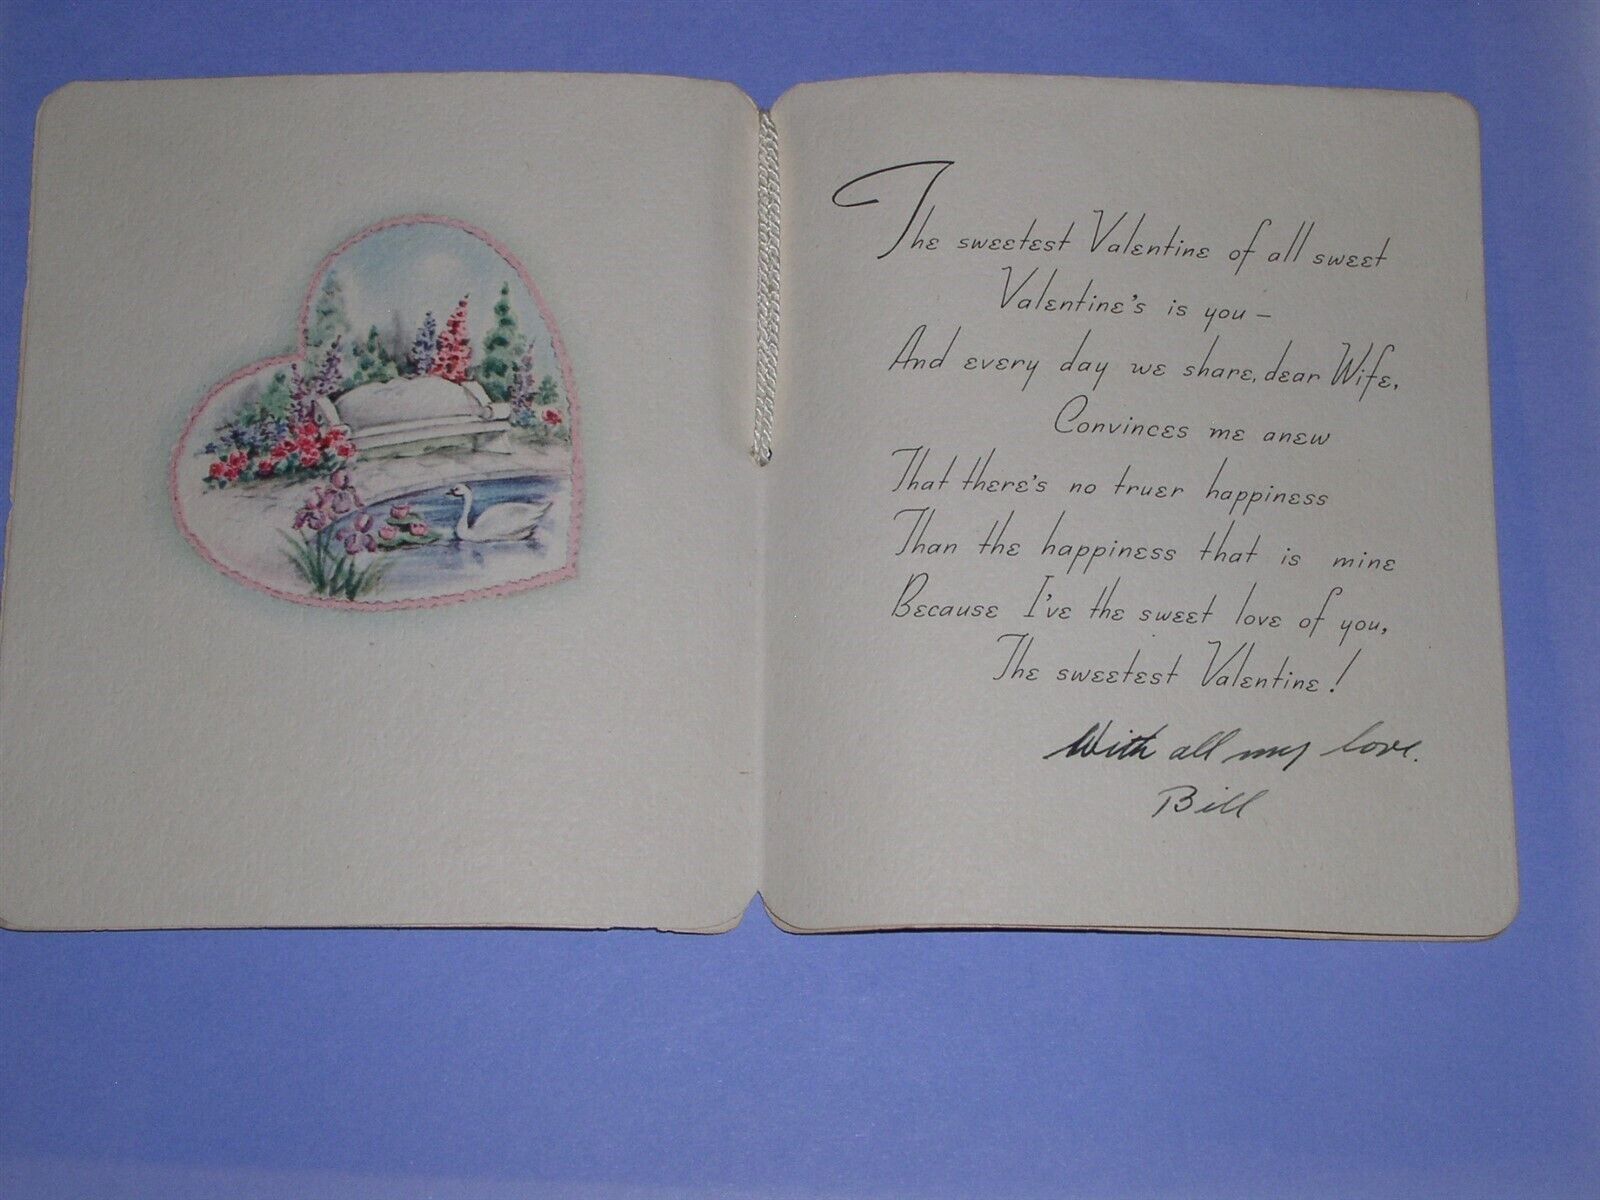 The sweetest Valentine of all sweet
Valentine's is you –
And every day we share, dear Wife,
Convinces me anew
That there's no truer happiness
Than the happiness that is mine
Because I've the sweet love of you,
The sweetest Valentine!
With all my love.
Bill